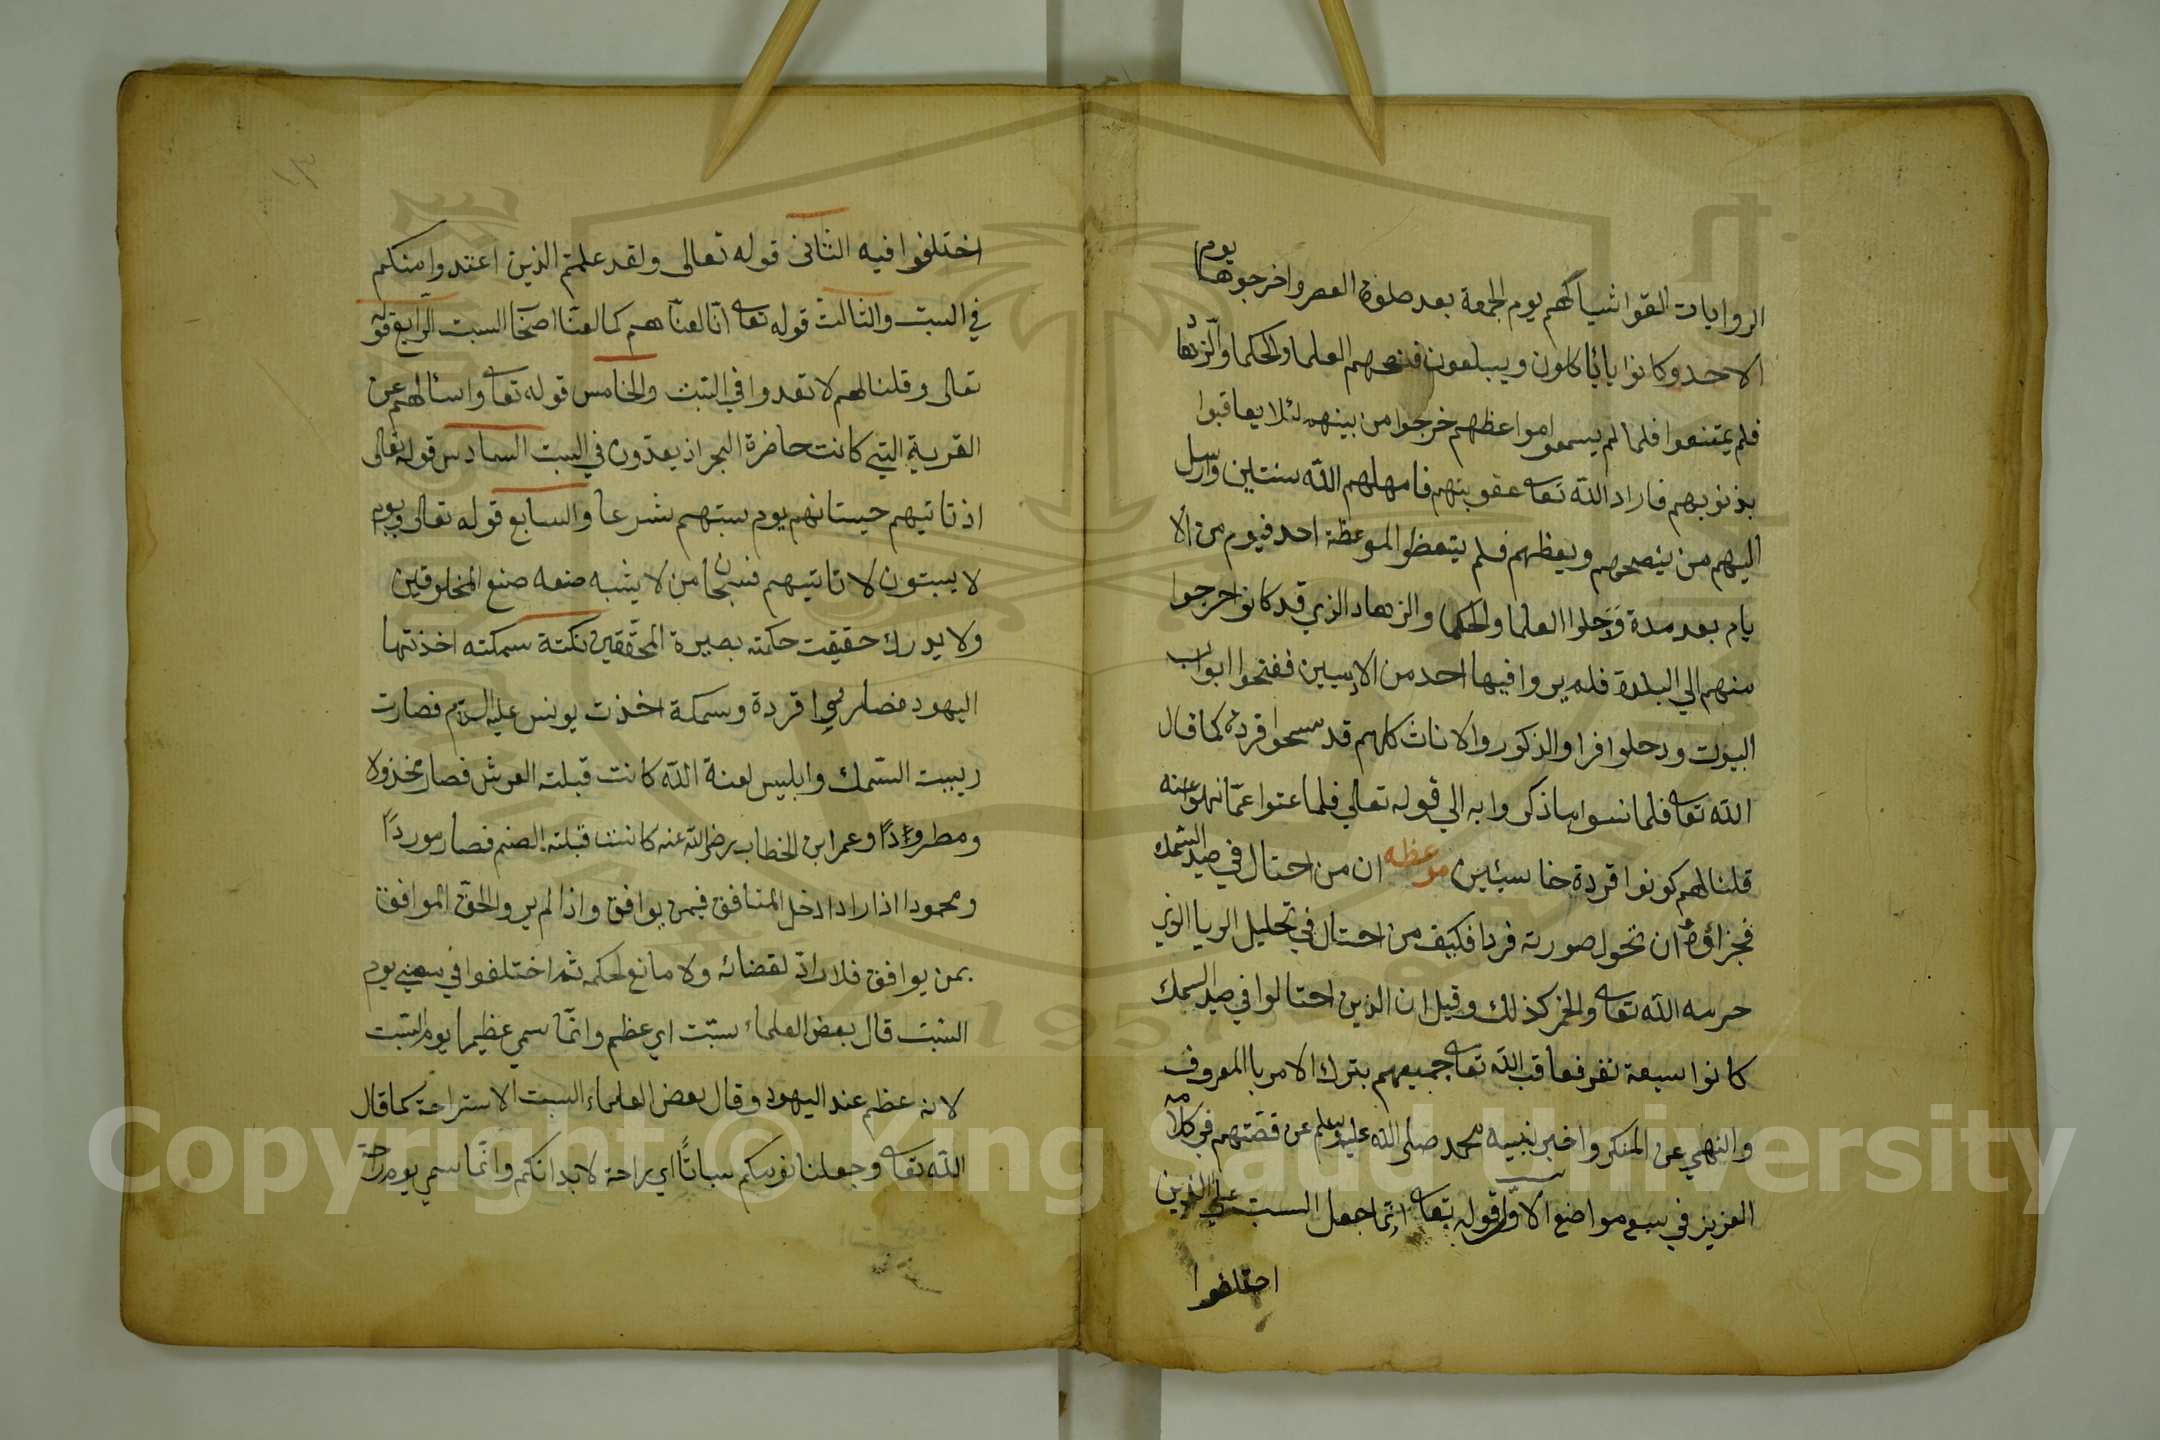 الروايات القوا شباكهم يوم الجمعة بعد صلوة العصر واخرجوها يوم
الاحد وكانوا يأكلون ويبلعون فنصحهم العلما والحكما والزهاد
فلم يمتنعوا فلما لم يسمعوا مواعظهم خرجوا من بينهم لئلا يعاقبوا
بذنوبهم فاراد الله تعا عقوبتهم فامهلهم الله سنتين وارسل
اليهم من ينصحهم ويعظهم فلم يتعظوا لموعظة احد فيوم من الا
يام بعد مدة دخلوا العلما والحكما والزهاد الذي قد كانوا خرجوا
منهم الي البلدة فلم يروا فيها احد من الانسيين ففتحوا ابواب
البيوت ودخلوا فراوا الذكور والاناث كلهم قد مسخوا قردة كما قال
الله تعا فلما نسوا ما ذكروا به الي قوله تعالي فلما عتوا عمّا نهوا عنه
قلنا لهم كونوا قردة خاسئين موعظه ان من احتال في صيد السمك
فجزاؤه ان تحول صورته قردا فكيف من احتال في تحليل الربا الذي
حرمه الله تعا والخمر كذلك وقيل ان الذين احتالوا في صيد السمك
كانوا سبعة نفر فعاقب الله تعا جميعهم بترك الامر بالمعروف
والنهي عن المنكر واخبر لنبيه محمد صلى الله عليه وسلم عن قصّتهم في كلامه
العزيز في سبع مواضع الاوّل قوله تعا انما جعل السبت علي الذين
اختلفوا
١٣
اختلفوا فيه الثانى قوله تعالى ولقد علمتم الذين اعتدوا منكم
في السبت والثالث قوله تعا انا لعنّاهم كما لعنّا اصحٰاب السبت الرّابع قوله
تعالى وقلنا لهم لا تعدوا في السّبت والخامس قوله تعا واسئالهم عن
القرية التي كانت حاضرة البحر اذ يعدّون في السبت السادس قوله تعالى
اذ تاتيهم حيتانهم يوم سبتهم شرعا والسابع قوله تعالى ويوم
لا يسبتون لا تاتيهم فسبحان من لا يشبه صنعه صنع المخلوقين
ولا يدرك حقيقت حكمته بصيرة المحقّقين نكتة سمكته اخذتها
اليهود فصاروا قردة وسمكة اخذت يونس عليه السلام فصارت
ربيبت السّمك وابليس لعنة الله كانت قبلته العرش فصار مخذولا
ومطرودًا وعمر ابن الخطاب رضي الله عنه كانت قبلته الصنم فصار مورداً
ومحمودا اذا اراد ادخل المنافق فيمن يوافق واذا لم يرد الحق الموافق
بمن يوافق فلا رادّ لقضائه ولا مانع لحكمه ثم اختلفوا في معني يوم
السّبت قال بعض العلماء سبّت اي عظم وانّما سمي عظيما يوم السّبت
لانه عظم عند اليهود وقال بعض العلماء السبت الاستراحة كما قال
الله تعا وجعلنا نومكم سباتًا اي راحة لابدانكم وانّما سمي يوم راحة